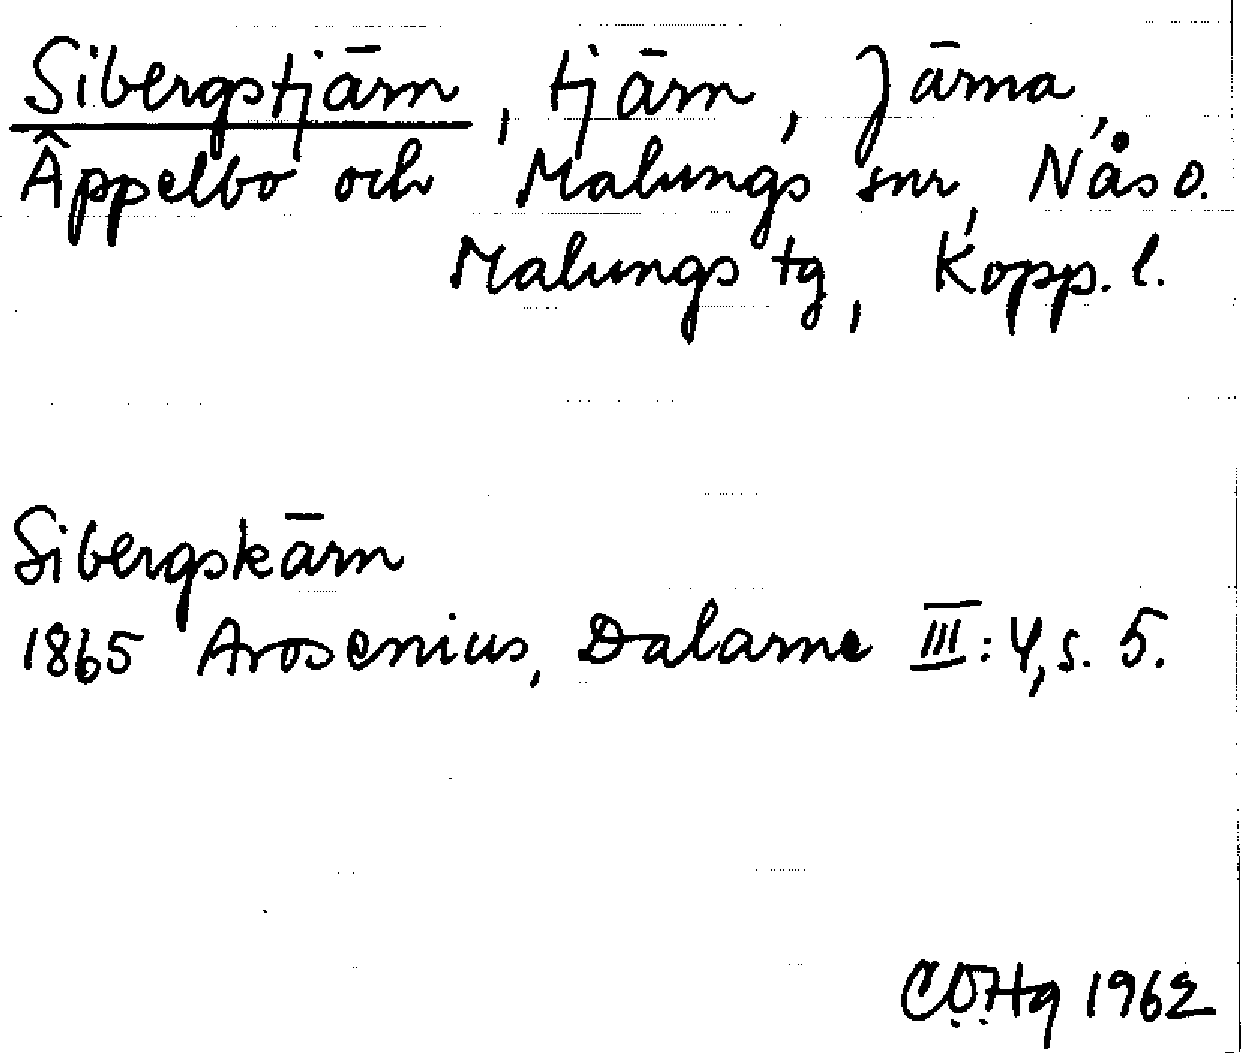 Sibergstjärn, tjärn, Järna,
Äppelbo och Malungs snr, Nås o.
Malungs tg, Kopp. l.
Sibergskärn
1865 Arosenius, Dalarne III: 4, s. 5.
CÖHg 1962